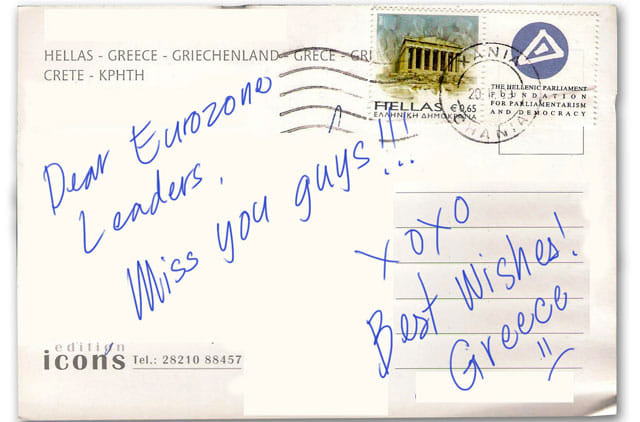 HELLAS - GREECE - GRIECHENLAND - GRECE - GRI
CRETE - KPHTH
HELLAS €0,65
ΕΛΛΗΝΙΚΗ ΔΗΜΟΚΡΑΤΙΑ
THE HELLENIC PARLIAMENT
FOUNDATION
FOR PARLIAMENTARISM
AND DEMOCRACY
HANIA
HANIA
Dear Eurozone
Leaders,
Miss you guys!!!...
XOXO
Best Wishes!
Greece
edition
icons Tel.: 28210 88457